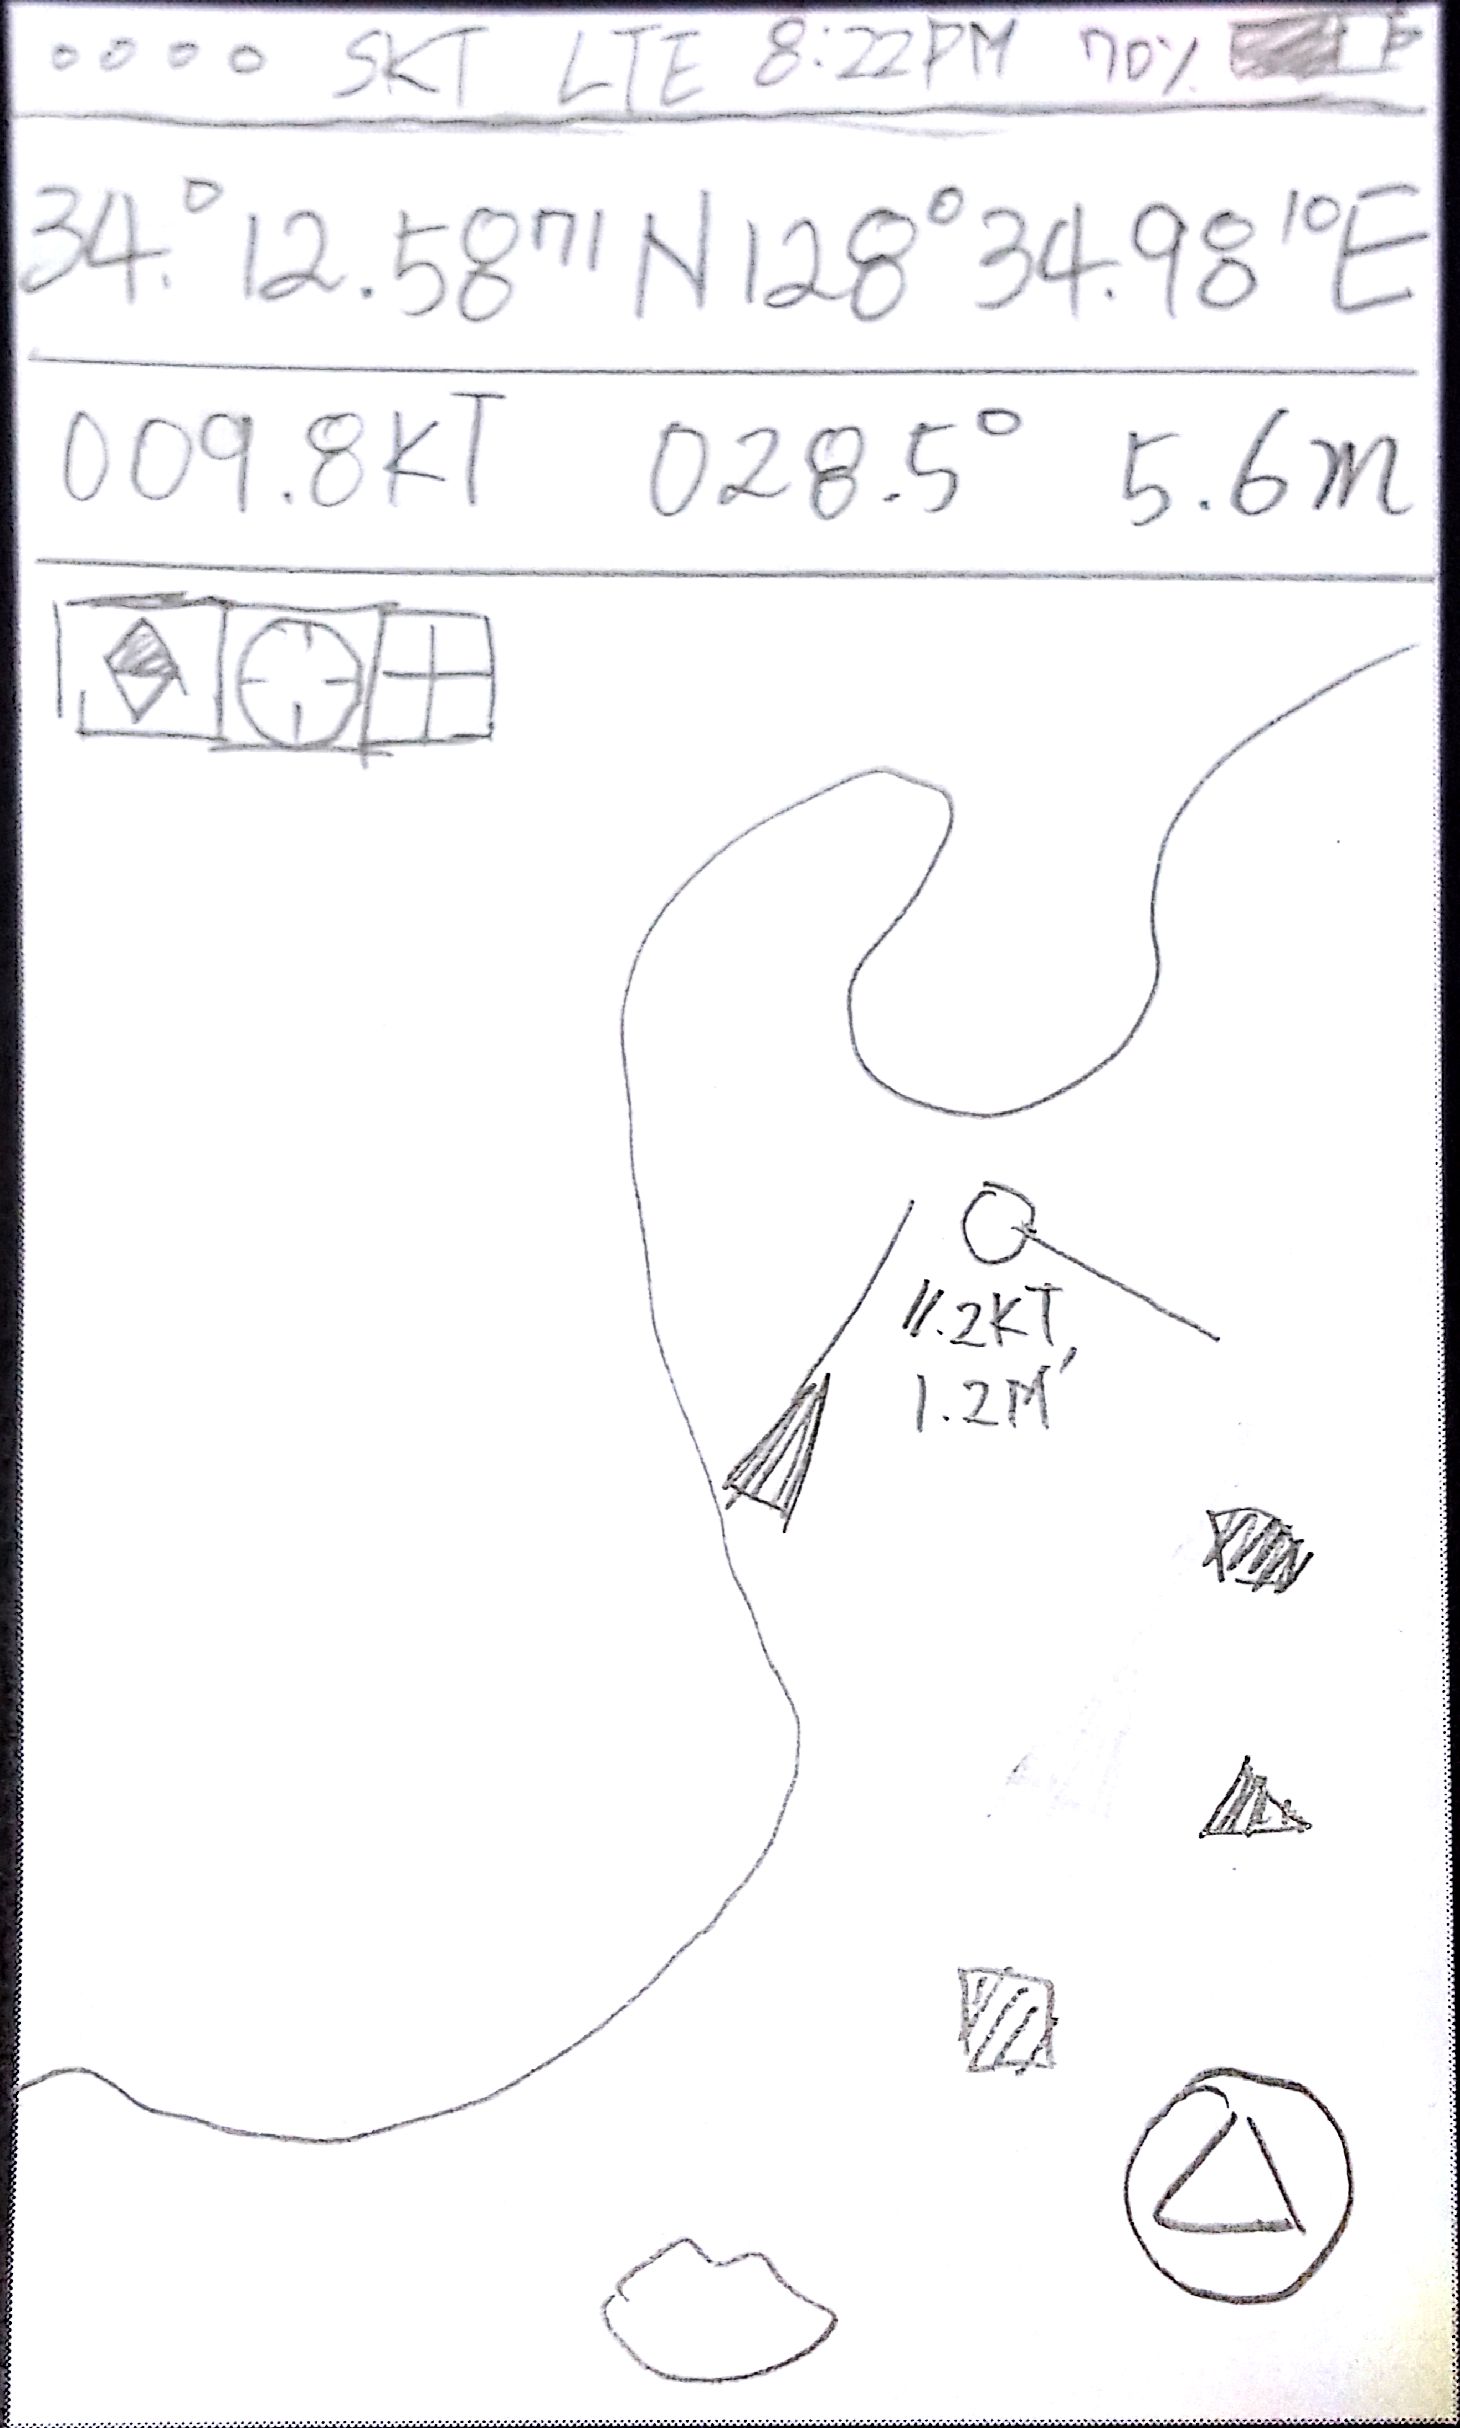 SKT LTE 8:22PM 70%
34.°12.5871N 128°34.9810E
009.8KT 028.5° 5.6m
11.2KT,
1.2M'